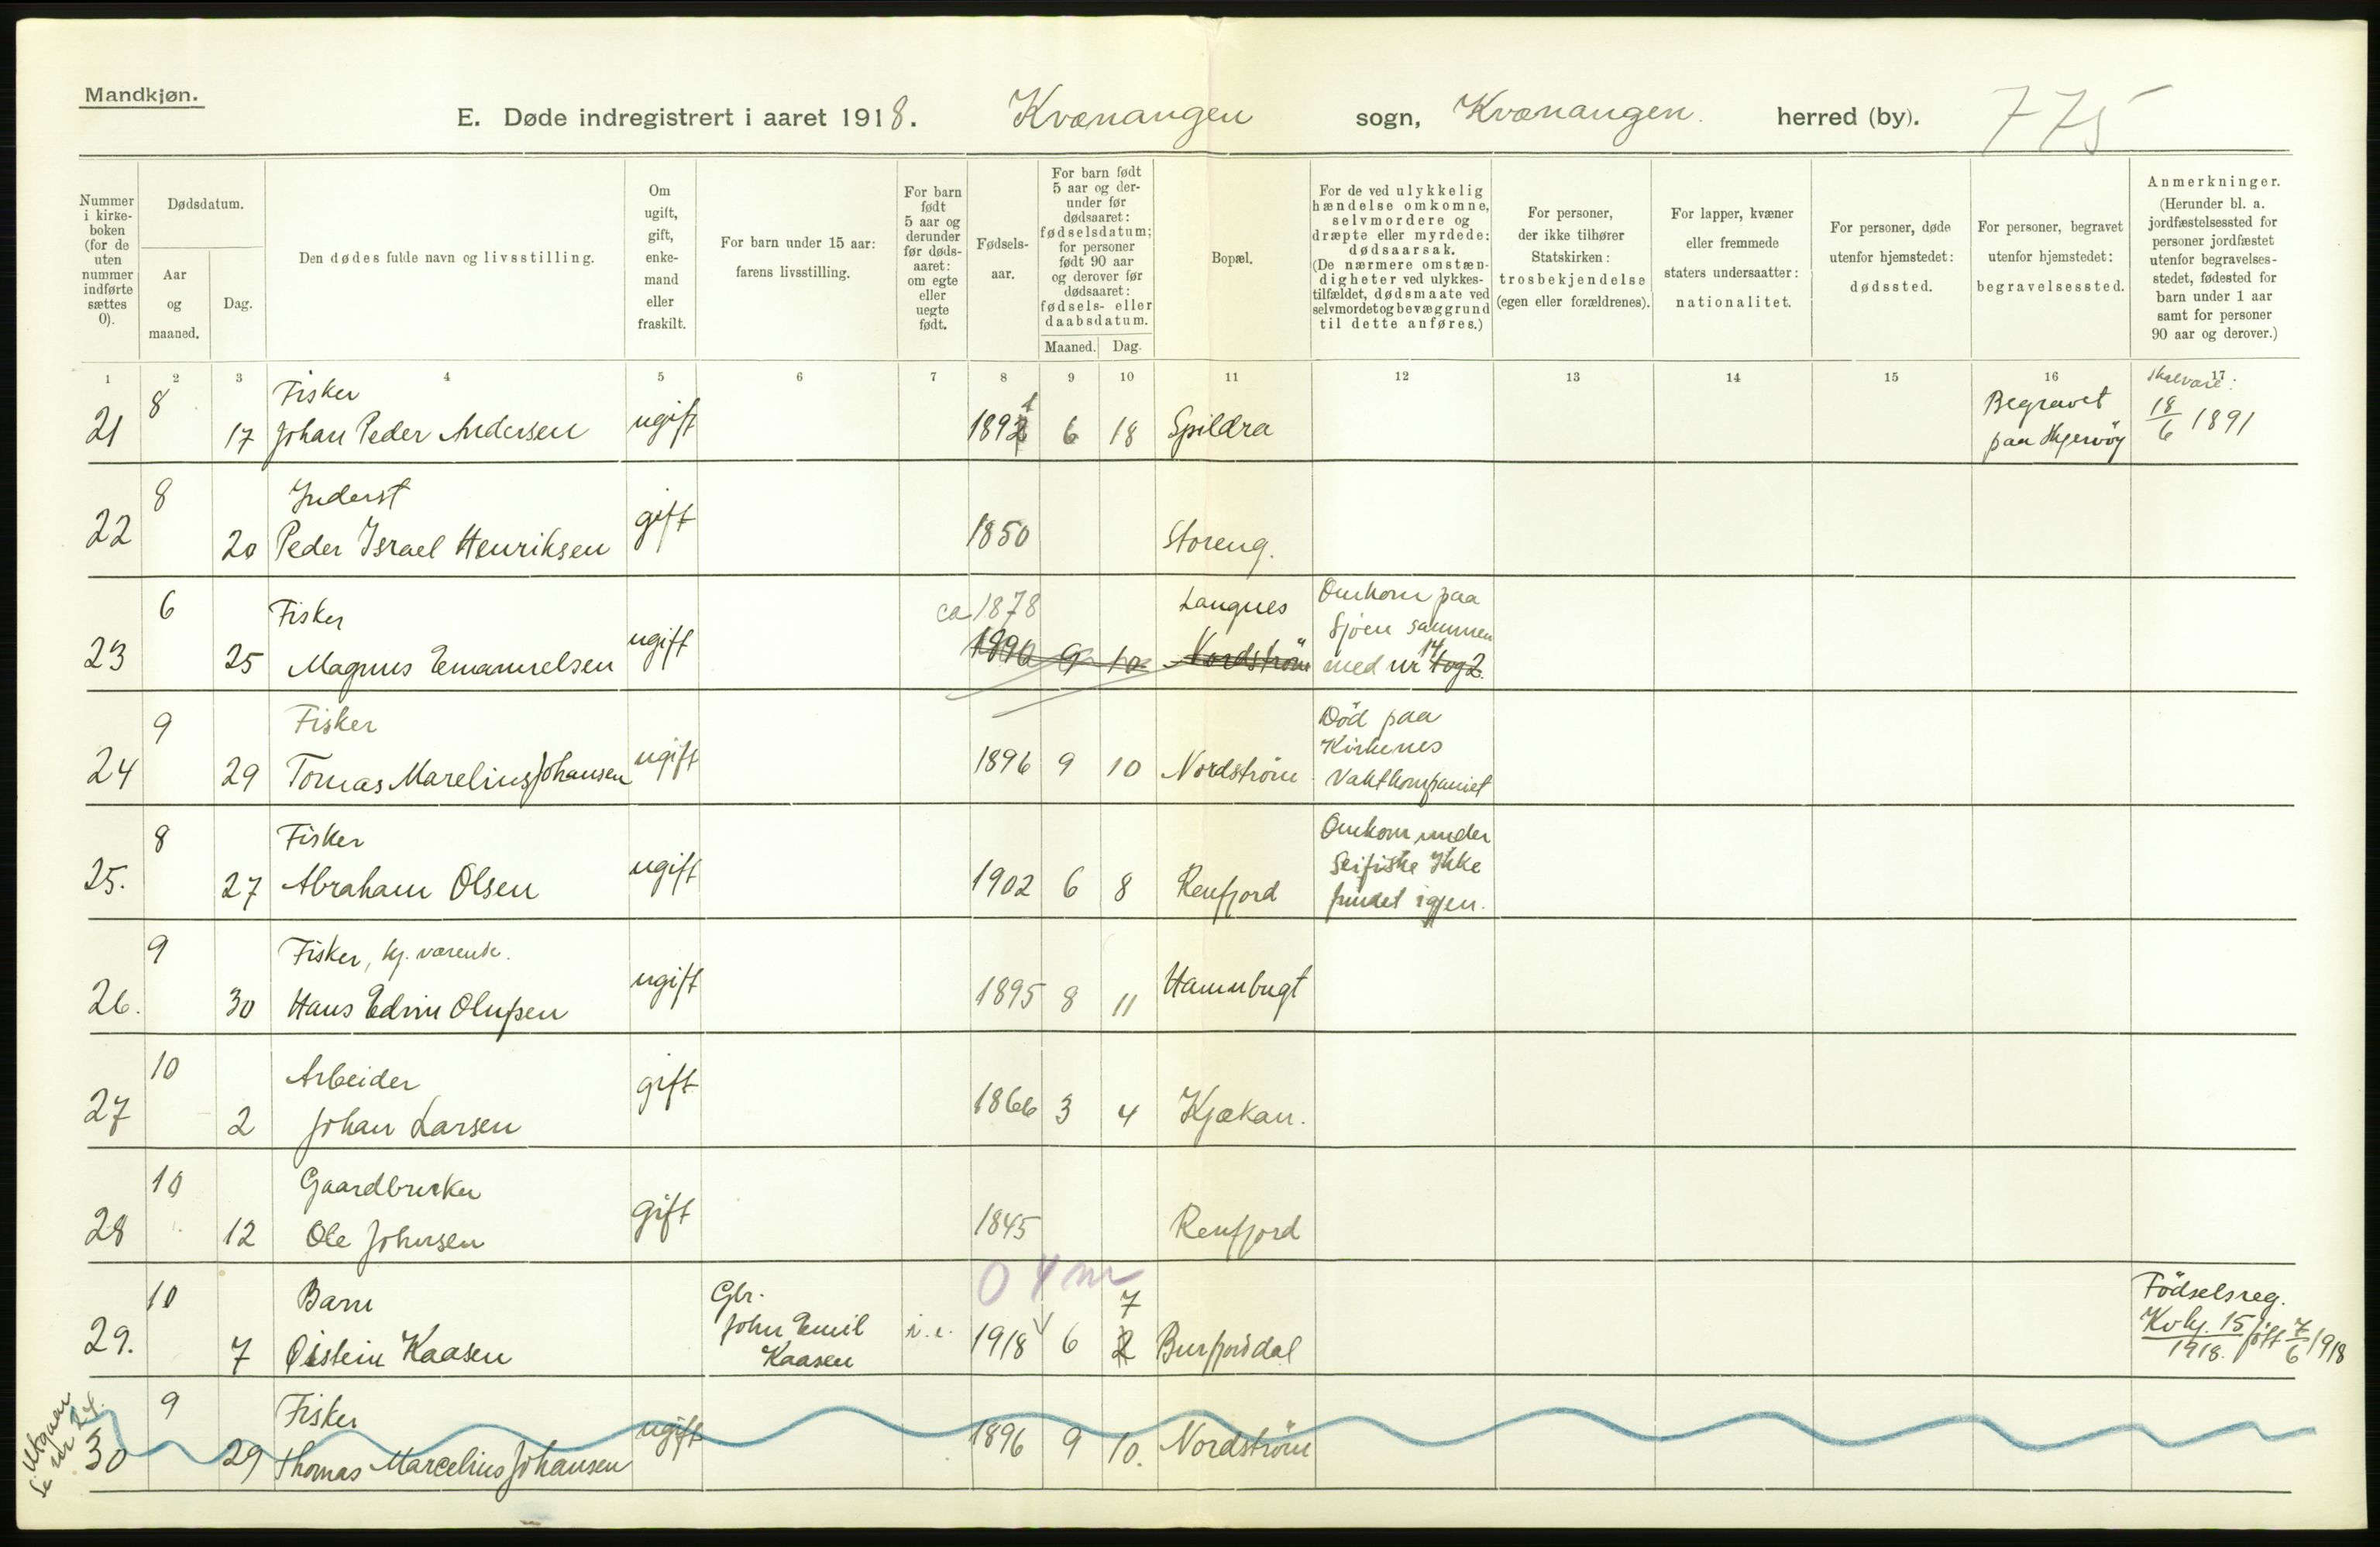 Mandkjøn.
E. Døde indregistrert i aaret 1918. Kvænangen sogn, Kvænangen. herred (by). 775
Nummer i kirke- boken (for de uten nummer indførte sættes 0).
Dødsdatum.
Aar og maaned.
Dag.
Den dødes fulde navn og livsstilling.
Om ugift, gift, enke- mand eller fraskilt.
For barn under 15 aar: farens livsstilling.
For barn født 5 aar og derunder før døds- aaret: om egte eller uegte født.
Fødsels- aar.
For barn født 5 aar og der- under før dødsaaret: fødselsdatum; for personer født 90 aar og derover før dødsaaret: fødsels- eller daabsdatum.
Maaned. Dag.
Bopæl.
For de ved ulykkelig hændelse omkomne, selvmordere og dræpte eller myrdede: dødsaarsak. (De nærmere omstæn- digheter ved ulykkes- tilfældet, dødsmaate ved selvmord og bevæggrund til dette anføres.)
For personer, der ikke tilhører Statskirken: trosbekjendelse (egen eller forældrenes).
For lapper, kvæner eller fremmede staters undersaatter: nationalitet.
For personer, døde utenfor hjemstedet: dødssted.
For personer, begravet utenfor hjemstedet: begravelsessted.
Anmerkninger. (Herunder bl. a. jordfæstelsessted for personer jordfæstet utenfor begravelses- stedet, fødested for barn under 1 aar samt for personer 90 aar og derover.)
1 2 3 4 5 6 7 8 9 10 11 12 13 14 15 16 17
8 Fisker Begravet skal være:
21 17 Johan Peder Andersen ugift 1892 1 6 18 Spildra paa Skjervöy 18/6 1891
8 Inderst
22 20 Peder Israel Henriksen gift 1850 Storeng.
6 Fisker ca 1878 Langnes Omkom paa
Sjøen sammen
23 25 Magnus Emanuelsen ugift 1896 9 10 Nordström med nr 14 1 og 2.
9 Fisker Död paa
Kirkenes
24 29 Tomas Marelius Johansen ugift 1896 9 10 Nordström Vaktkompaniet
8 Fisker Omkom under
Seifiske Ikke
25. 27 Abraham Olsen ugift 1902 6 8 Renfjord fundet igjen.
9 Fisker, hj. værende.
26. 30 Hans Edvin Olufsen ugift 1895 8 11 Hamnbugt
10 Arbeider
27 2 Johan Larsen gift 1866 3 4 Kjækan.
10 Gaardbruker
28 12 Ole Johnsen gift 1845 Renfjord
0 4 m
10 Barn Gbr. 7 Födselsreg.
29. 7 Øistein Kaasen John Emil Kaasen i. e. 1918 6 2 Burfjorddal Kvkj. 15/1918. föft 7/6 1918
Utgaar
Se nr 24.
9 Fisker
30 29 Thomas Marcelius Johansen ugift 1896 9 10. Nordström